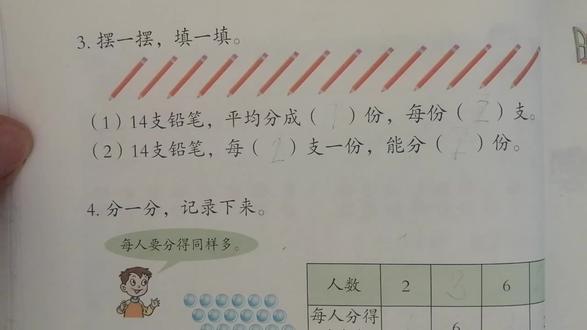 3. 摆一摆，填一填。
(1) 14支铅笔，平均分成（7）份，每份（2）支。
(2) 14支铅笔，每（2）支一份，能分（7）份。
4. 分一分，记录下来。
每人要分得同样多。
人数 2 3 6
每人分得 6